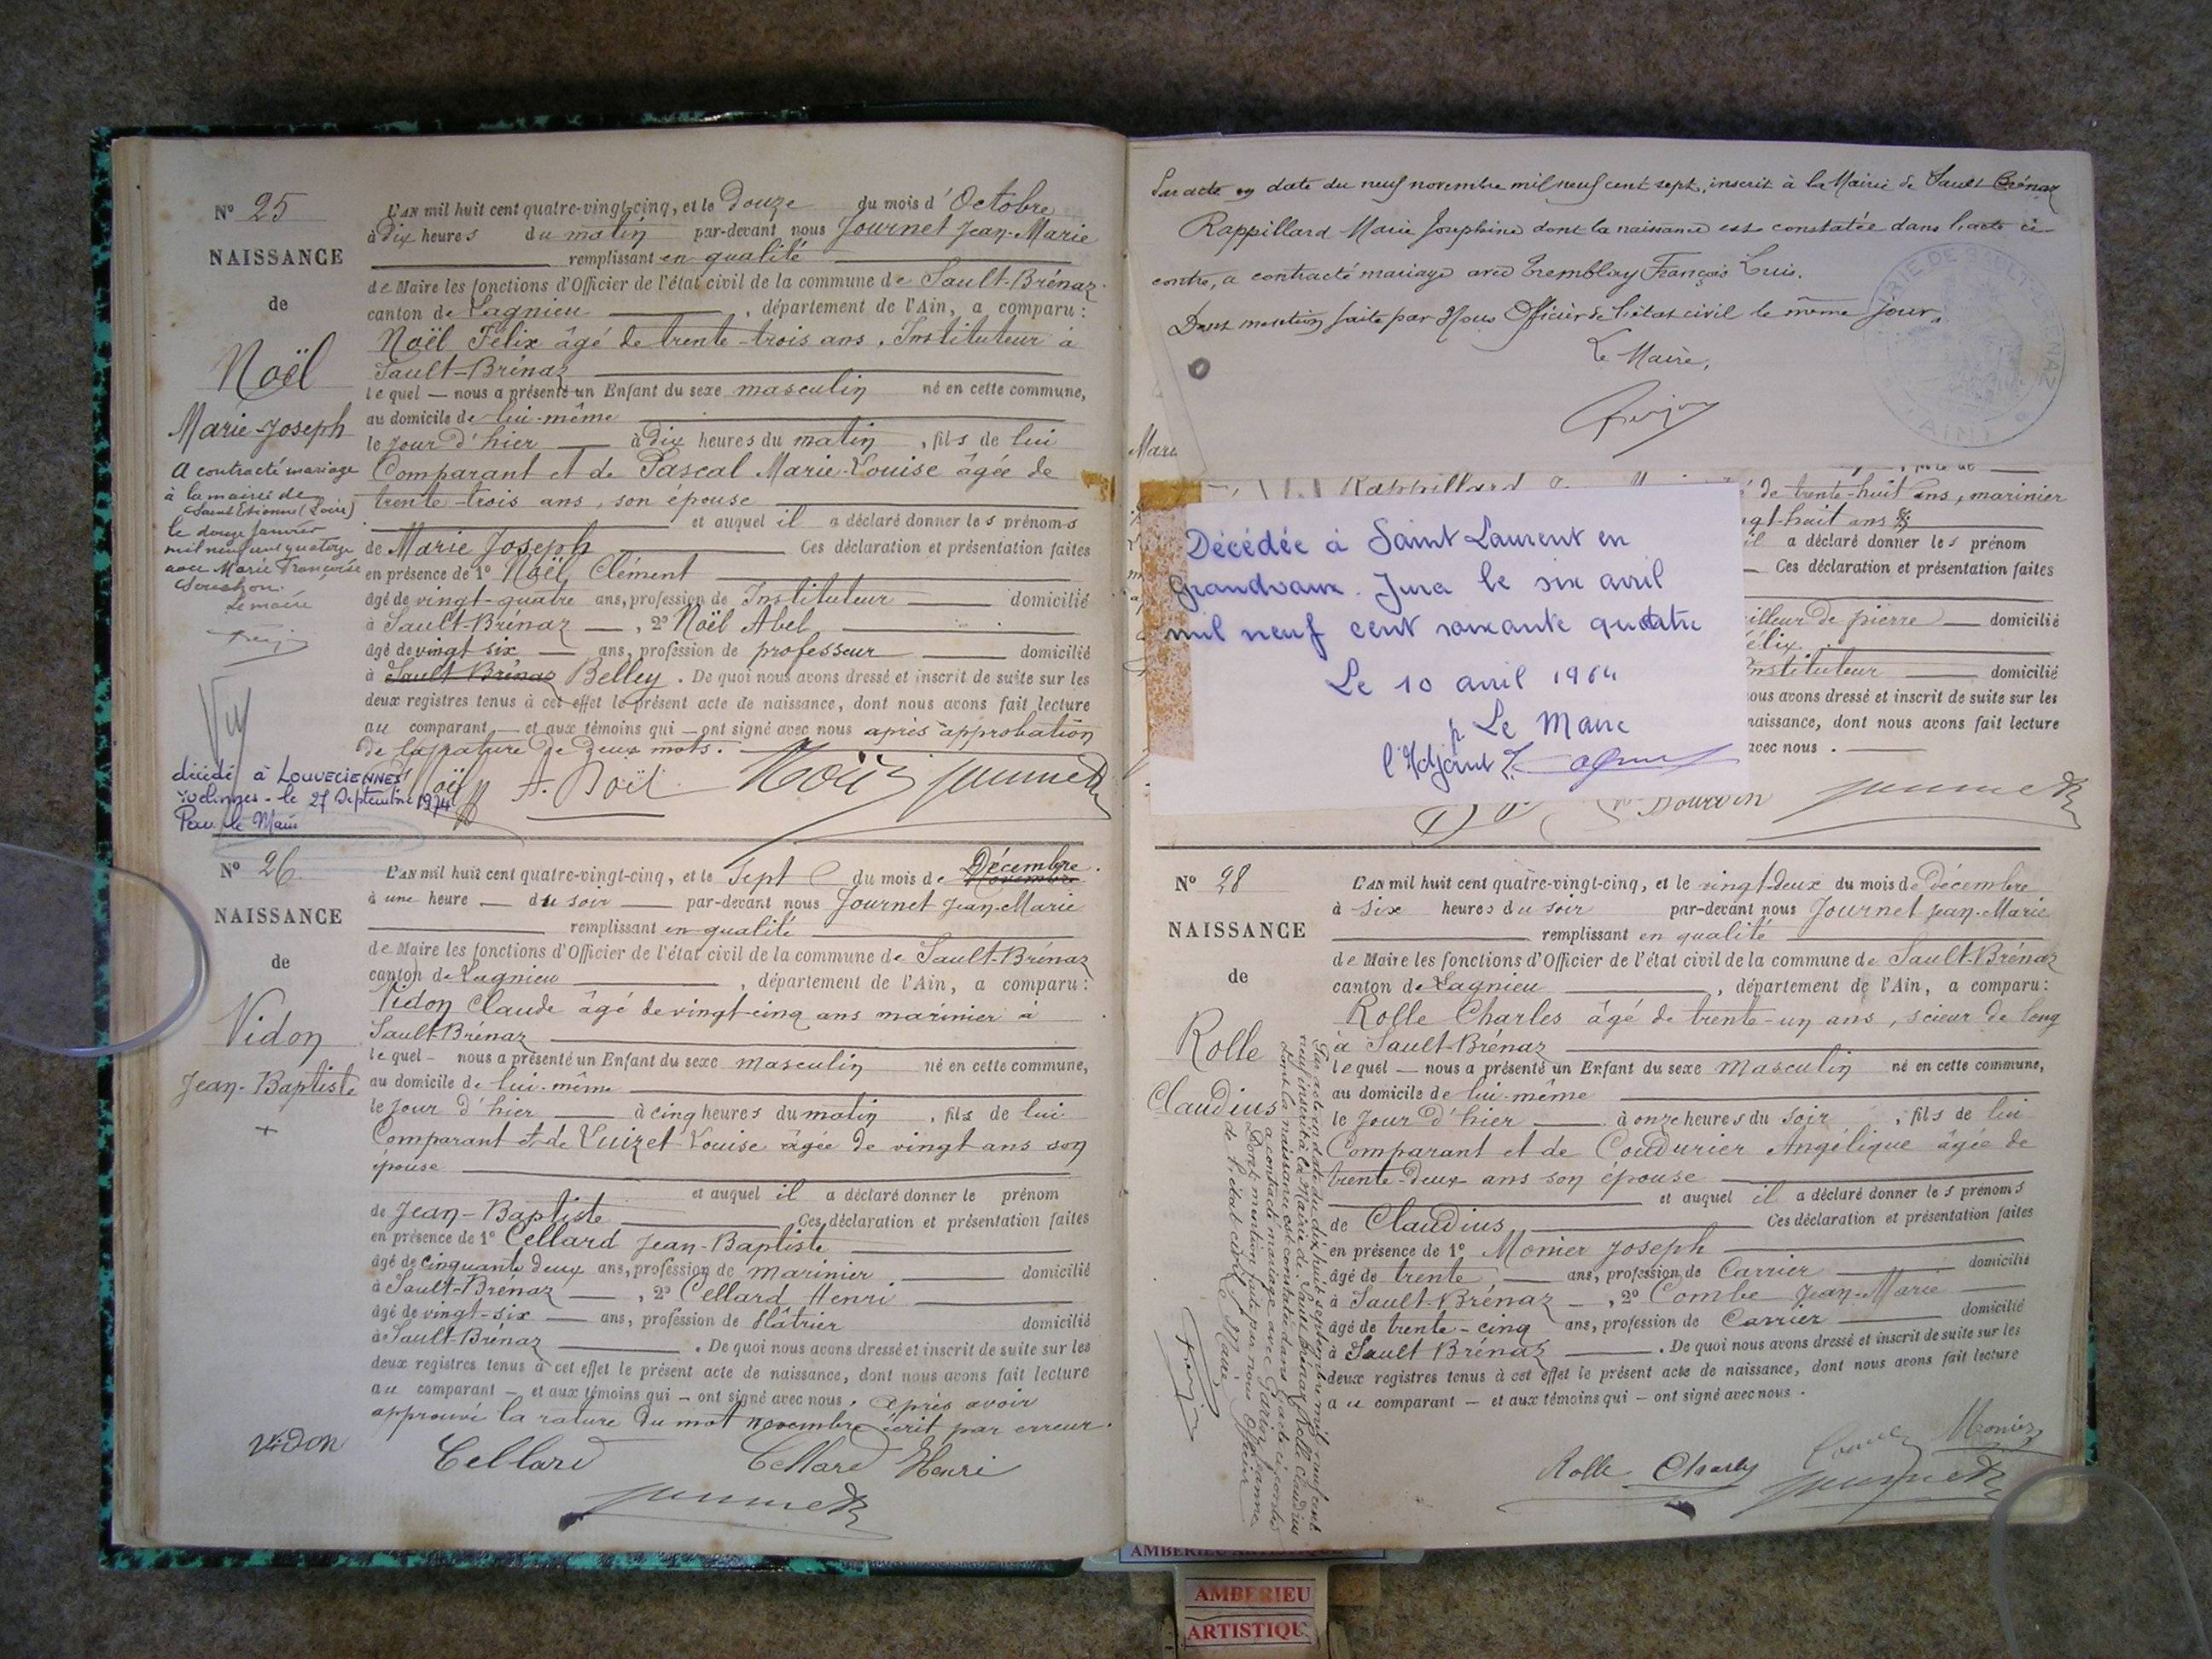 Nº 25
NAISSANCE
de
Noël
Marie-Joseph
A contracté mariage
à la mairie de
Saint Etienne (Loire)
le douze Janvier
mil neuf cent quatorze
avec Marie Françoise
Souchon.
Le maire
décédé à LOUVECIENNES
Yvelines - le 27 Septembre 1974
Pour le Maire
L'AN mil huit cent quatre-vingt-cinq, et le douze du mois d'Octobre
à dix heures du matin par-devant nous Journet Jean-Marie
remplissant en qualité
de Maire les fonctions d'Officier de l'état civil de la commune de Sault-Brénaz.
canton de Lagnieu, département de l'Ain, a comparu:
Noël Félix âgé de trente-trois ans, Instituteur à
Sault-Brénaz
lequel — nous a présenté un Enfant du sexe masculin né en cette commune,
au domicile de lui-même
le jour d'hier à dix heures du matin, fils de lui
Comparant et de Pascal Marie-Louise âgée de
trente-trois ans, son épouse
et auquel il a déclaré donner les prénoms
de Marie Joseph Ces déclaration et présentation faites
en présence de 1º Noël Clément
âgé de vingt-quatre ans, profession de Instituteur domicilié
à Sault-Brénaz, 2º Noël Abel
âgé de vingt six ans, profession de professeur domicilié
à Sault Brénaz Belley. De quoi nous avons dressé et inscrit de suite sur les
deux registres tenus à cet effet le présent acte de naissance, dont nous avons fait lecture
au comparant — et aux témoins qui — ont signé avec nous après approbation
de la rature de deux mots.
Noël A. Noël Noël Journet
Nº 26
NAISSANCE
de
Vidon
Jean-Baptiste
+
L'AN mil huit cent quatre-vingt-cinq, et le Sept du mois de Novembre Décembre.
à une heure — du soir — par-devant nous Journet Jean-Marie
remplissant en qualité
de Maire les fonctions d'Officier de l'état civil de la commune de Sault-Brénaz
canton de Lagnieu, département de l'Ain, a comparu:
Vidon Claude âgé de vingt-cinq ans marinier à
Sault-Brénaz
lequel — nous a présenté un Enfant du sexe masculin né en cette commune,
au domicile de lui-même
le jour d'hier à cinq heures du matin, fils de lui
Comparant et de Luizet Louise âgée de vingt ans son
épouse
et auquel il a déclaré donner le prénom
de Jean-Baptiste Ces déclaration et présentation faites
en présence de 1º Cellard Jean-Baptiste
âgé de cinquante deux ans, profession de marinier domicilié
à Sault-Brénaz, 2º Cellard Henri
âgé de vingt-six ans, profession de Plâtrier domicilié
à Sault-Brénaz. De quoi nous avons dressé et inscrit de suite sur les
deux registres tenus à cet effet le présent acte de naissance, dont nous avons fait lecture
au comparant — et aux témoins qui — ont signé avec nous. Après avoir
approuvé la rature du mot novembre écrit par erreur.
Vidon Cellard Cellard Henri
Journet
Par acte en date du neuf novembre mil neuf cent sept, inscrit à la Mairie de Sault Brénaz
Rappillard Marie Joséphine dont la naissance est constatée dans l'acte ci-
contre, a contracté mariage avec Tremblay François Louis.
Dont mention faite par Nous Officier de l'état civil le même jour.
Le Maire,
MAIRIE DE
AIN
Marie
Rappillard
de trente-huit ans, marinier
vingt-huit ans
il a déclaré donner les prénom
Ces déclaration et présentation faites
tailleur de pierre — domicilié
Félix
Instituteur domicilié
nous avons dressé et inscrit de suite sur les
naissance, dont nous avons fait lecture
avec nous.
Décédée à Saint Laurent en
Grandvaux. Jura le six avril
mil neuf cent soixante quatre
Le 10 avril 1964
p. Le Maire
l'Adjoint
Journet
Nº 28
NAISSANCE
de
Rolle
Claudius
Par acte en date du dix huit septembre mil neuf cent
neuf inscrit à la Mairie de Sault Brénaz Rolle Claudius
dont la naissance est constatée dans l'acte ci-contre
a contracté mariage avec Jeanne.
Dont mention faite par nous Officier
de l'état civil. Le Maire
L'AN mil huit cent quatre-vingt-cinq, et le vingt-deux du mois de Décembre
à six heures du soir par-devant nous Journet Jean-Marie
remplissant en qualité
de Maire les fonctions d'Officier de l'état civil de la commune de Sault-Brénaz
canton de Lagnieu, département de l'Ain, a comparu:
Rolle Charles âgé de trente-un ans, scieur de long
à Sault-Brénaz
lequel — nous a présenté un Enfant du sexe masculin né en cette commune,
au domicile de lui-même
le jour d'hier à onze heures du soir, fils de lui
Comparant et de Coudurier Angélique âgée de
trente-deux ans son épouse
et auquel il a déclaré donner les prénoms
de Claudius Ces déclaration et présentation faites
en présence de 1º Monier Joseph
âgé de trente ans, profession de Carrier domicilié
à Sault-Brénaz, 2º Combe Jean-Marie
âgé de trente-cinq ans, profession de Carrier domicilié
à Sault Brénaz. De quoi nous avons dressé et inscrit de suite sur les
deux registres tenus à cet effet le présent acte de naissance, dont nous avons fait lecture
au comparant — et aux témoins qui — ont signé avec nous.
Rolle Charles Combe Monier
Journet
AMBERIEU
ARTISTIQU